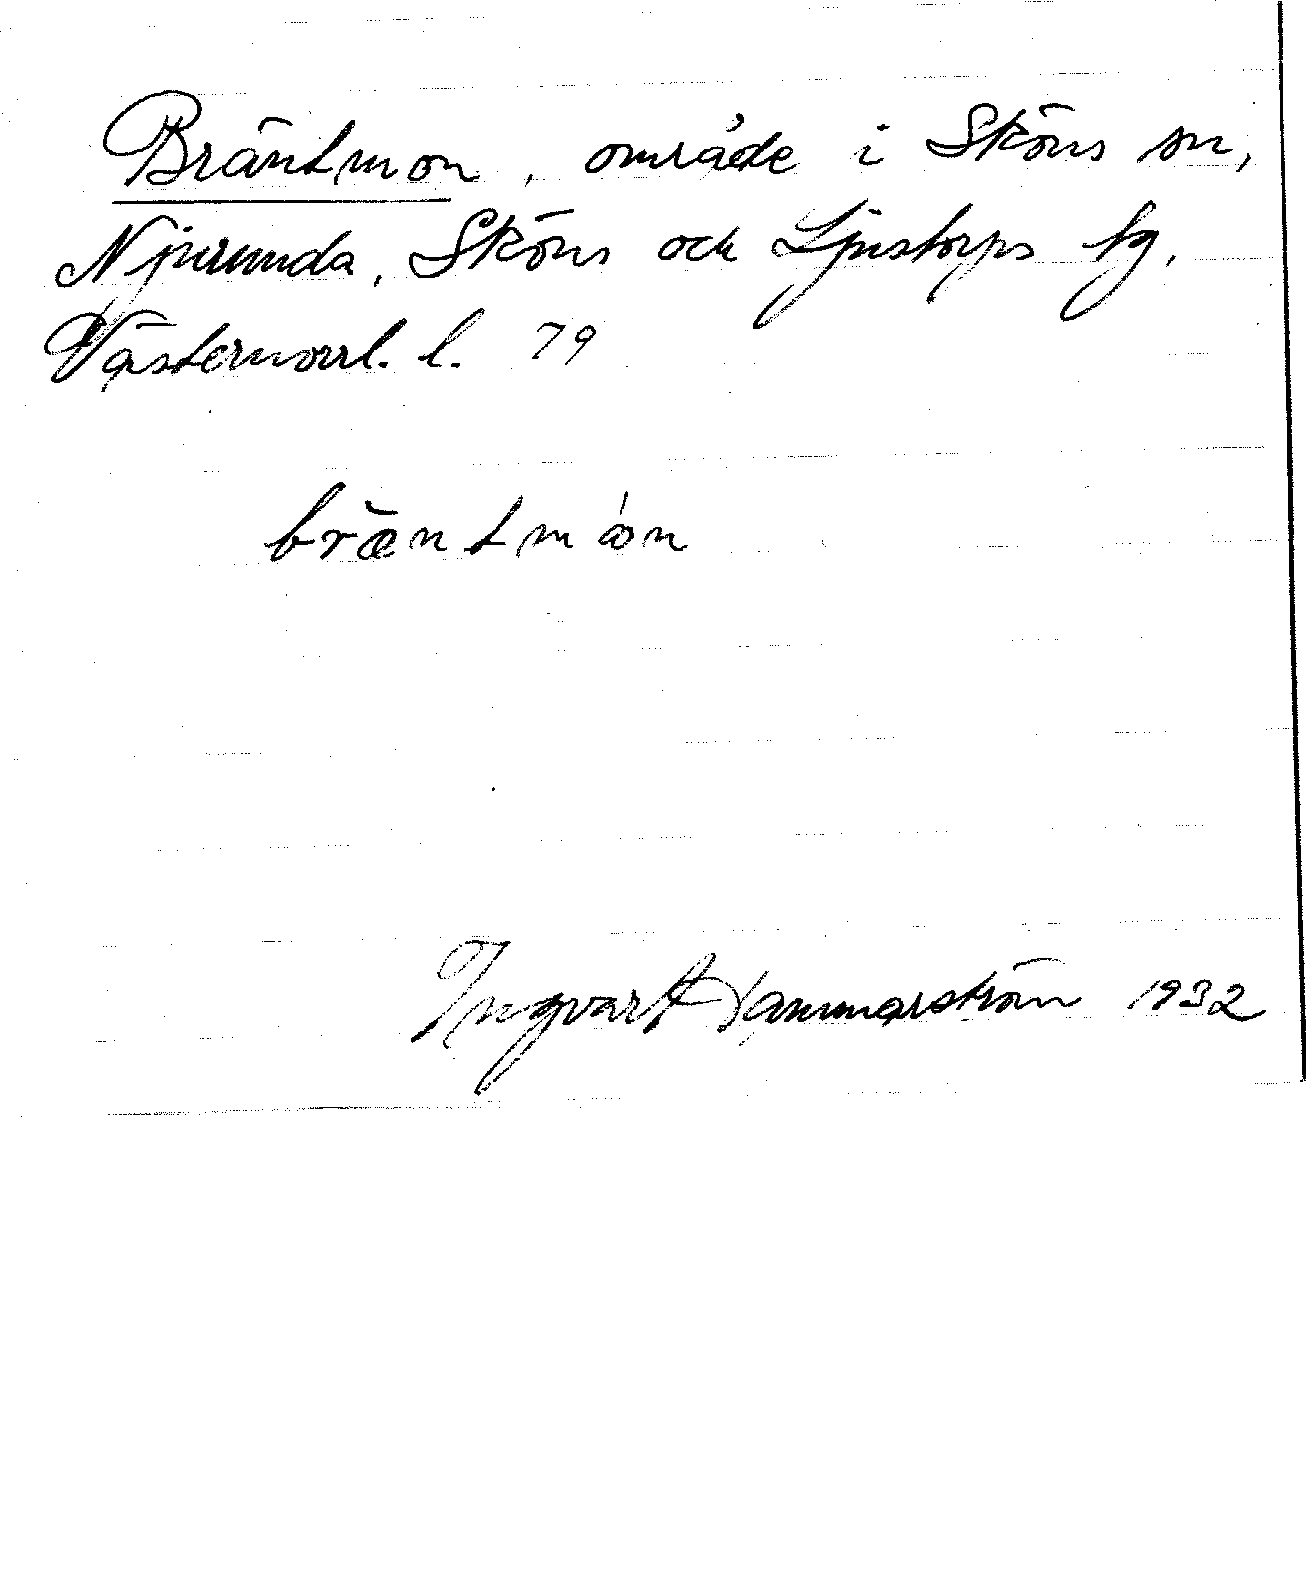 Bräntmon, område i Sköns sn,
Njurunda, Sköns och Ljustorps tg,
Västernorrl. l. 79
bræ̀ntmón
Ingvar Hammarström 1932